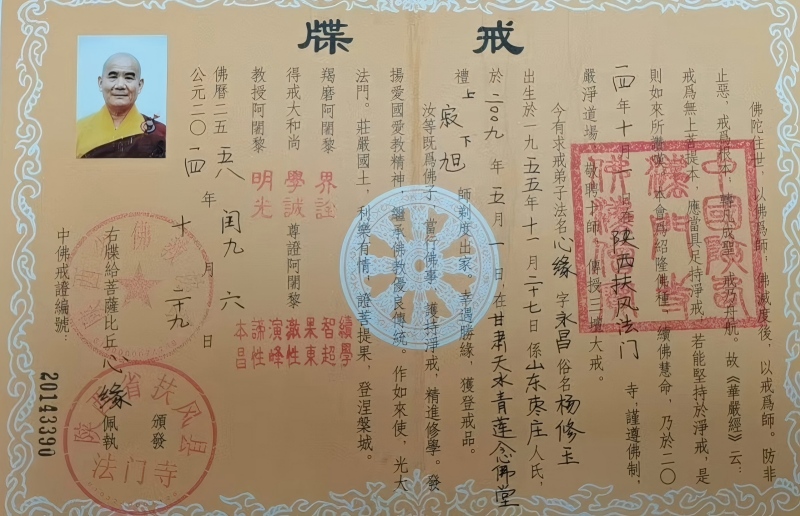 戒牒
佛陀住世，以佛爲師，佛滅度後，以戒爲師。防非
止惡，戒爲根本，轉凡成聖，戒乃舟航。故《華嚴經》云：
戒爲無上菩提本，應當具足持淨戒，若能堅持於淨戒，是
則如來所讚嘆。本會爲紹隆佛種，續佛慧命，乃於二〇
一四年十月一日在陝西扶风法门寺，謹遵佛制，
嚴淨道場，敬聘十師，傳授三壇大戒。
今有求戒弟子法名心緣字永昌俗名杨修玉
出生於一九五五年十一月二十七日係山东枣庄人氏，
於二〇〇九年五月一日，在甘肃天水青莲念佛堂
禮上寂下旭師剃度出家。幸遇勝緣，獲登戒品。
汝等既爲佛子，當行佛事，護持淨戒，精進修學。發
揚愛國愛教精神，繼承佛教優良傳統。作如來使，光大
法門。莊嚴國土，利樂有情，證菩提果，登涅槃城。
得戒大和尚 學誠
羯磨阿闍黎 界詮
教授阿闍黎 明光
尊證阿闍黎
續學
智超
果東
激性
演峰
諫性
本昌
佛曆二五五八年闰九月六日
公元二〇一四年十月二十九日
右牒給菩薩比丘心緣佩執
頒發
中佛戒證編號：
20143390
陝西省扶风县
法门寺